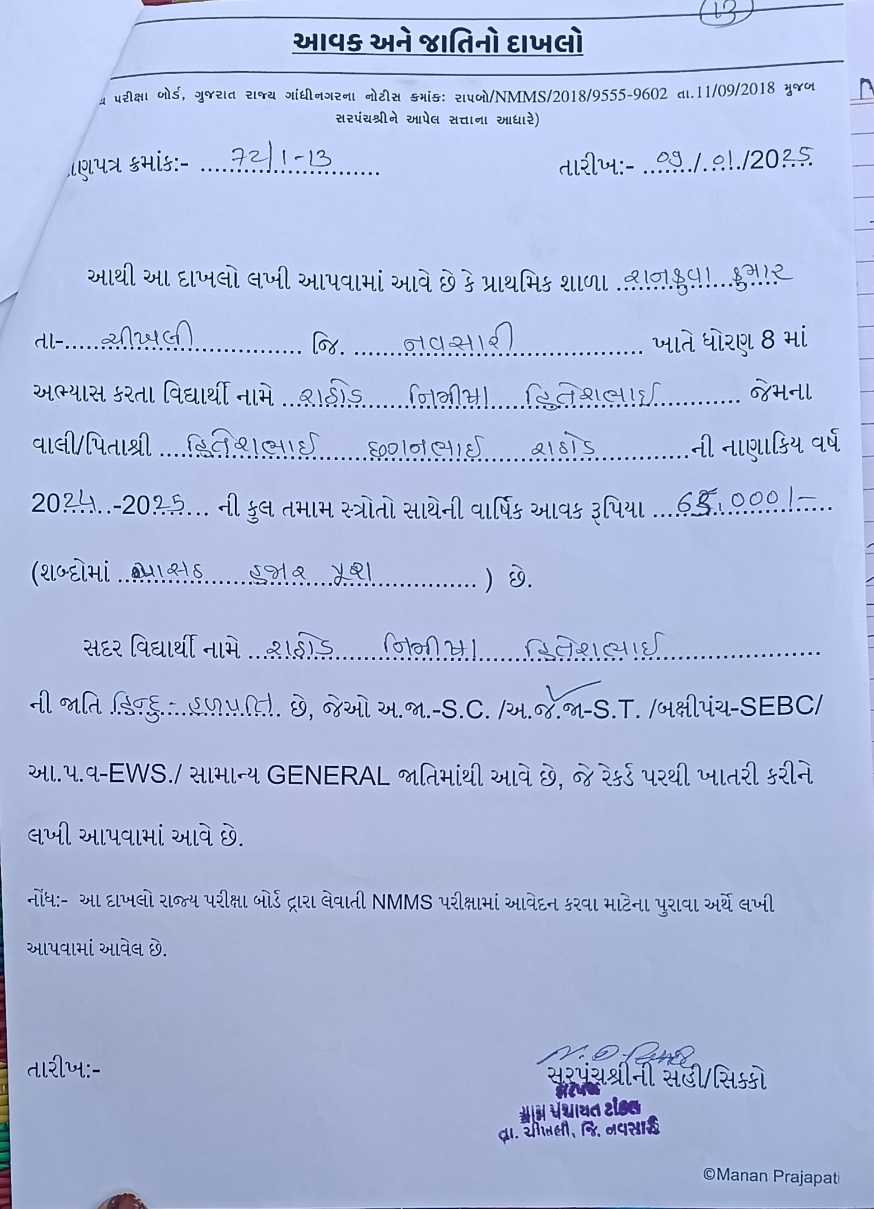 13
આવક અને જાતિનો દાખલો
પરીક્ષા બોર્ડ, ગુજરાત રાજ્ય ગાંધીનગરના નોટીસ ક્રમાંક: રાપબો/NMMS/2018/9555-9602 તા.11/09/2018 મુજબ
સરપંચશ્રીને આપેલ સત્તાના આધારે)
ણપત્ર ક્રમાંક:- 72/1-13 તારીખ:- 09/01/2025
આથી આ દાખલો લખી આપવામાં આવે છે કે પ્રાથમિક શાળા રાનકુવા કુમાર
તા-ચીખલી જિ. નવસારી ખાતે ધોરણ 8 માં
અભ્યાસ કરતા વિદ્યાર્થી નામે રાઠોડ હિતેશભાઈ જેમના
વાલી/પિતાશ્રી હિતેશભાઈ છગનભાઈ રાઠોડ ની નાણાકિય વર્ષ
2024-2025 ની કુલ તમામ સ્ત્રોતો સાથેની વાર્ષિક આવક રૂપિયા
(શબ્દોમાં હજાર પુરા) છે.
સદર વિદ્યાર્થી નામે રાઠોડ હિતેશભાઈ
ની જાતિ હિન્દુ - હળપતિ છે, જેઓ અ.જા.-S.C. /અ.જ.જા-S.T. /બક્ષીપંચ-SEBC/
આ.પ.વ-EWS./ સામાન્ય GENERAL જાતિમાંથી આવે છે, જે રેકર્ડ પરથી ખાતરી કરીને
લખી આપવામાં આવે છે.
નોંધ:- આ દાખલો રાજ્ય પરીક્ષા બોર્ડ દ્વારા લેવાતી NMMS પરીક્ષામાં આવેદન કરવા માટેના પુરાવા અર્થે લખી
આપવામાં આવેલ છે.
તારીખ:-
સરપંચશ્રીની સહી/સિક્કો
સરપંચ
ગ્રામ પંચાયત ટાંકલ
તા. ચીખલી, જિ. નવસારી
©Manan Prajapati